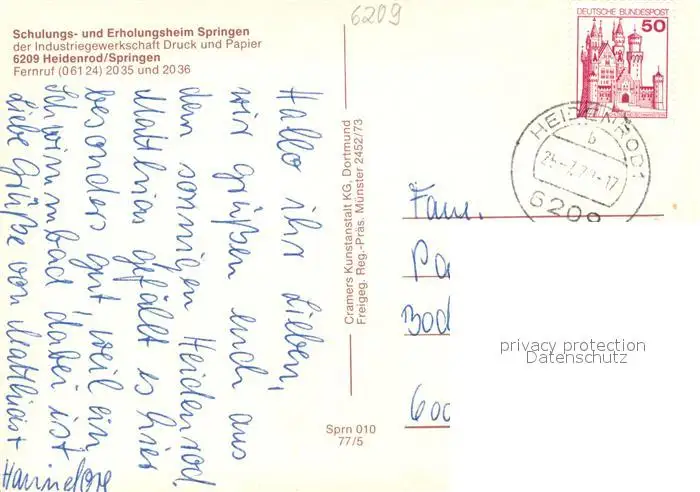 Schulungs- und Erholungsheim Springen
der Industriegewerkschaft Druck und Papier
6209 Heidenrod/Springen
Fernruf (0 61 24) 20 35 und 20 36
6209
DEUTSCHE BUNDESPOST
50
HEIDENROD 1
b
6209
Hallo ihr Lieben,
wir grüßen euch aus
dem sonnigen Heidenrod.
Matthias gefällt es hier
besonders gut, weil ein
Schwimmbad dabei ist.
Liebe Grüße von Matthias +
Hannelore
Cramers Kunstanstalt KG, Dortmund
Freigeg. Reg.-Präs. Münster 2452/73
Sprn 010
77/5
Fam.
Pa
Bod
600
privacy protection
Datenschutz